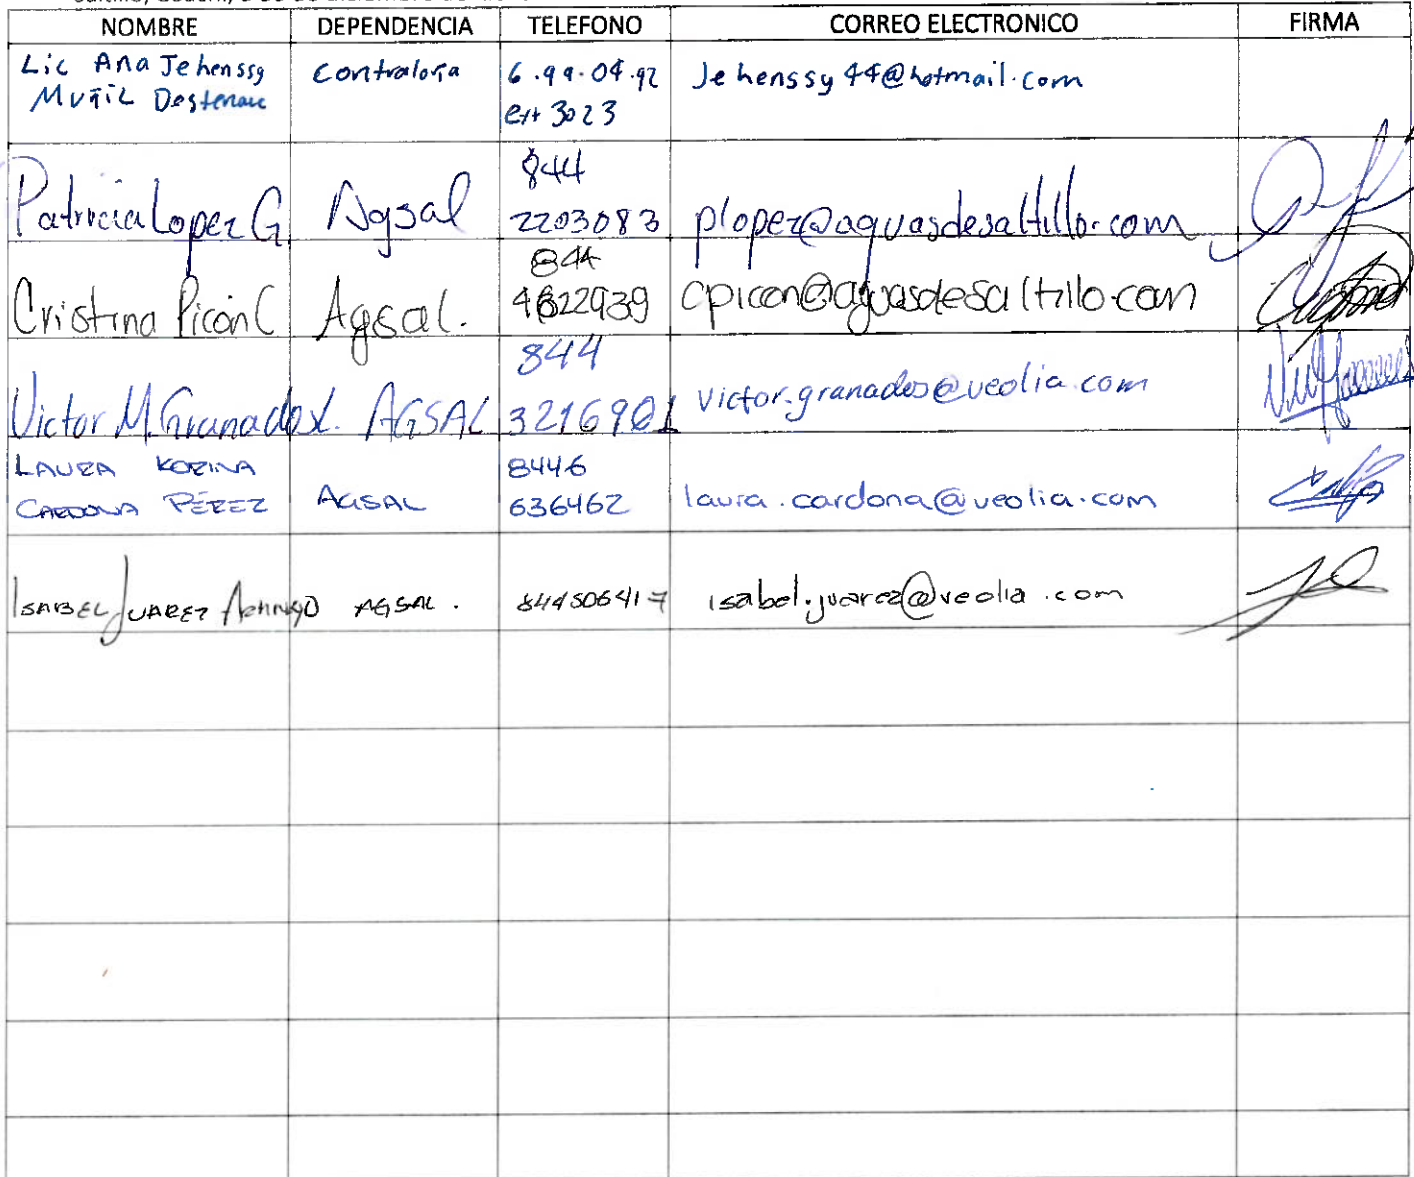 NOMBRE DEPENDENCIA TELEFONO CORREO ELECTRONICO FIRMA
Lic Ana Jehenssy contraloria 6.99.04.92 Jehenssy44@hotmail.com
ext 3023
844
Patricia Lopez G Agsal 2203083 plopez@aguasdesaltillo.com
844
Cristina Picón C Agsal. 4622939 cpicon@aguasdesaltillo.com
844
Victor M. Granados L. AGSAL 3216901 victor.granados@veolia.com
LAURA KORINA 8446
CARDONA PÉREZ AGSAL 636462 laura.cardona@veolia.com
ISABEL JUAREZ AGSAL. 844506417 isabel.juarez@veolia.com